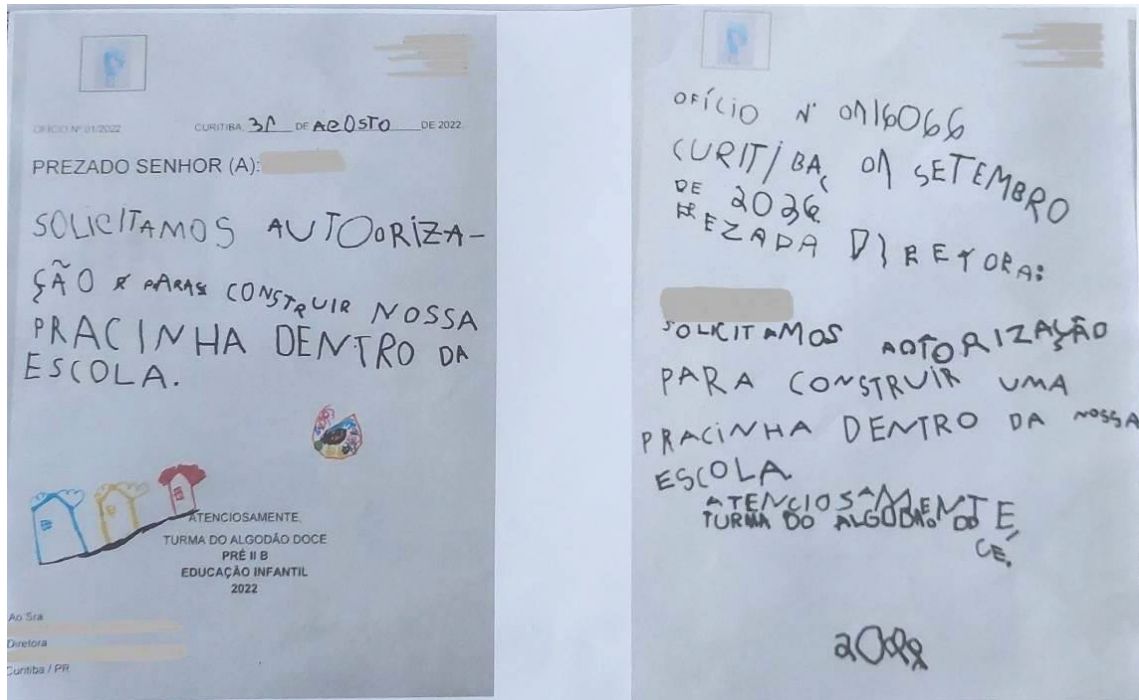 OFÍCIO Nº 01/2022 CURITIBA, 31 DE AGOSTO DE 2022.
PREZADO SENHOR (A):
SOLICITAMOS AUTOORIZA-
ÇÃO PARA CONSTRUIR NOSSA
PRACINHA DENTRO DA
ESCOLA.
ATENCIOSAMENTE,
TURMA DO ALGODÃO DOCE
PRÉ II B
EDUCAÇÃO INFANTIL
2022
Ao Sra
Diretora
Curitiba / PR
OFÍCIO Nº
CURITIBA, 01 SETEMBRO
DE
REZADA DIRETORA:
SOLICITAMOS AOTORIZAÇÃO
PARA CONSTRUIR UMA
PRACINHA DENTRO DA NOSSA
ESCOLA
ATENCIOSAMENTE,
TURMA DO ALGODÃO DO
CE.